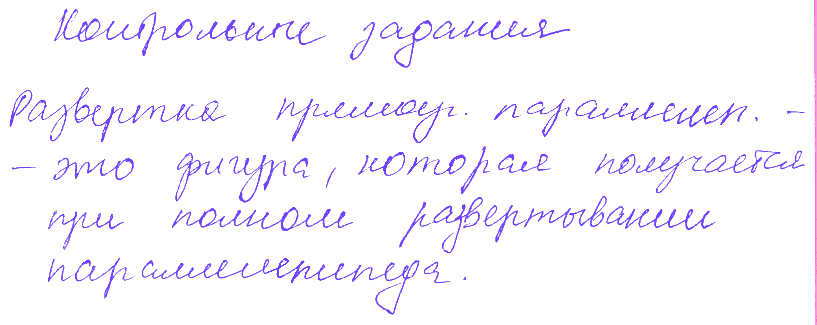 Контрольные задания
Развертка прямоуг. параллелеп. -
- это фигура, которая получается
при полном развертывании
параллелепипеда.